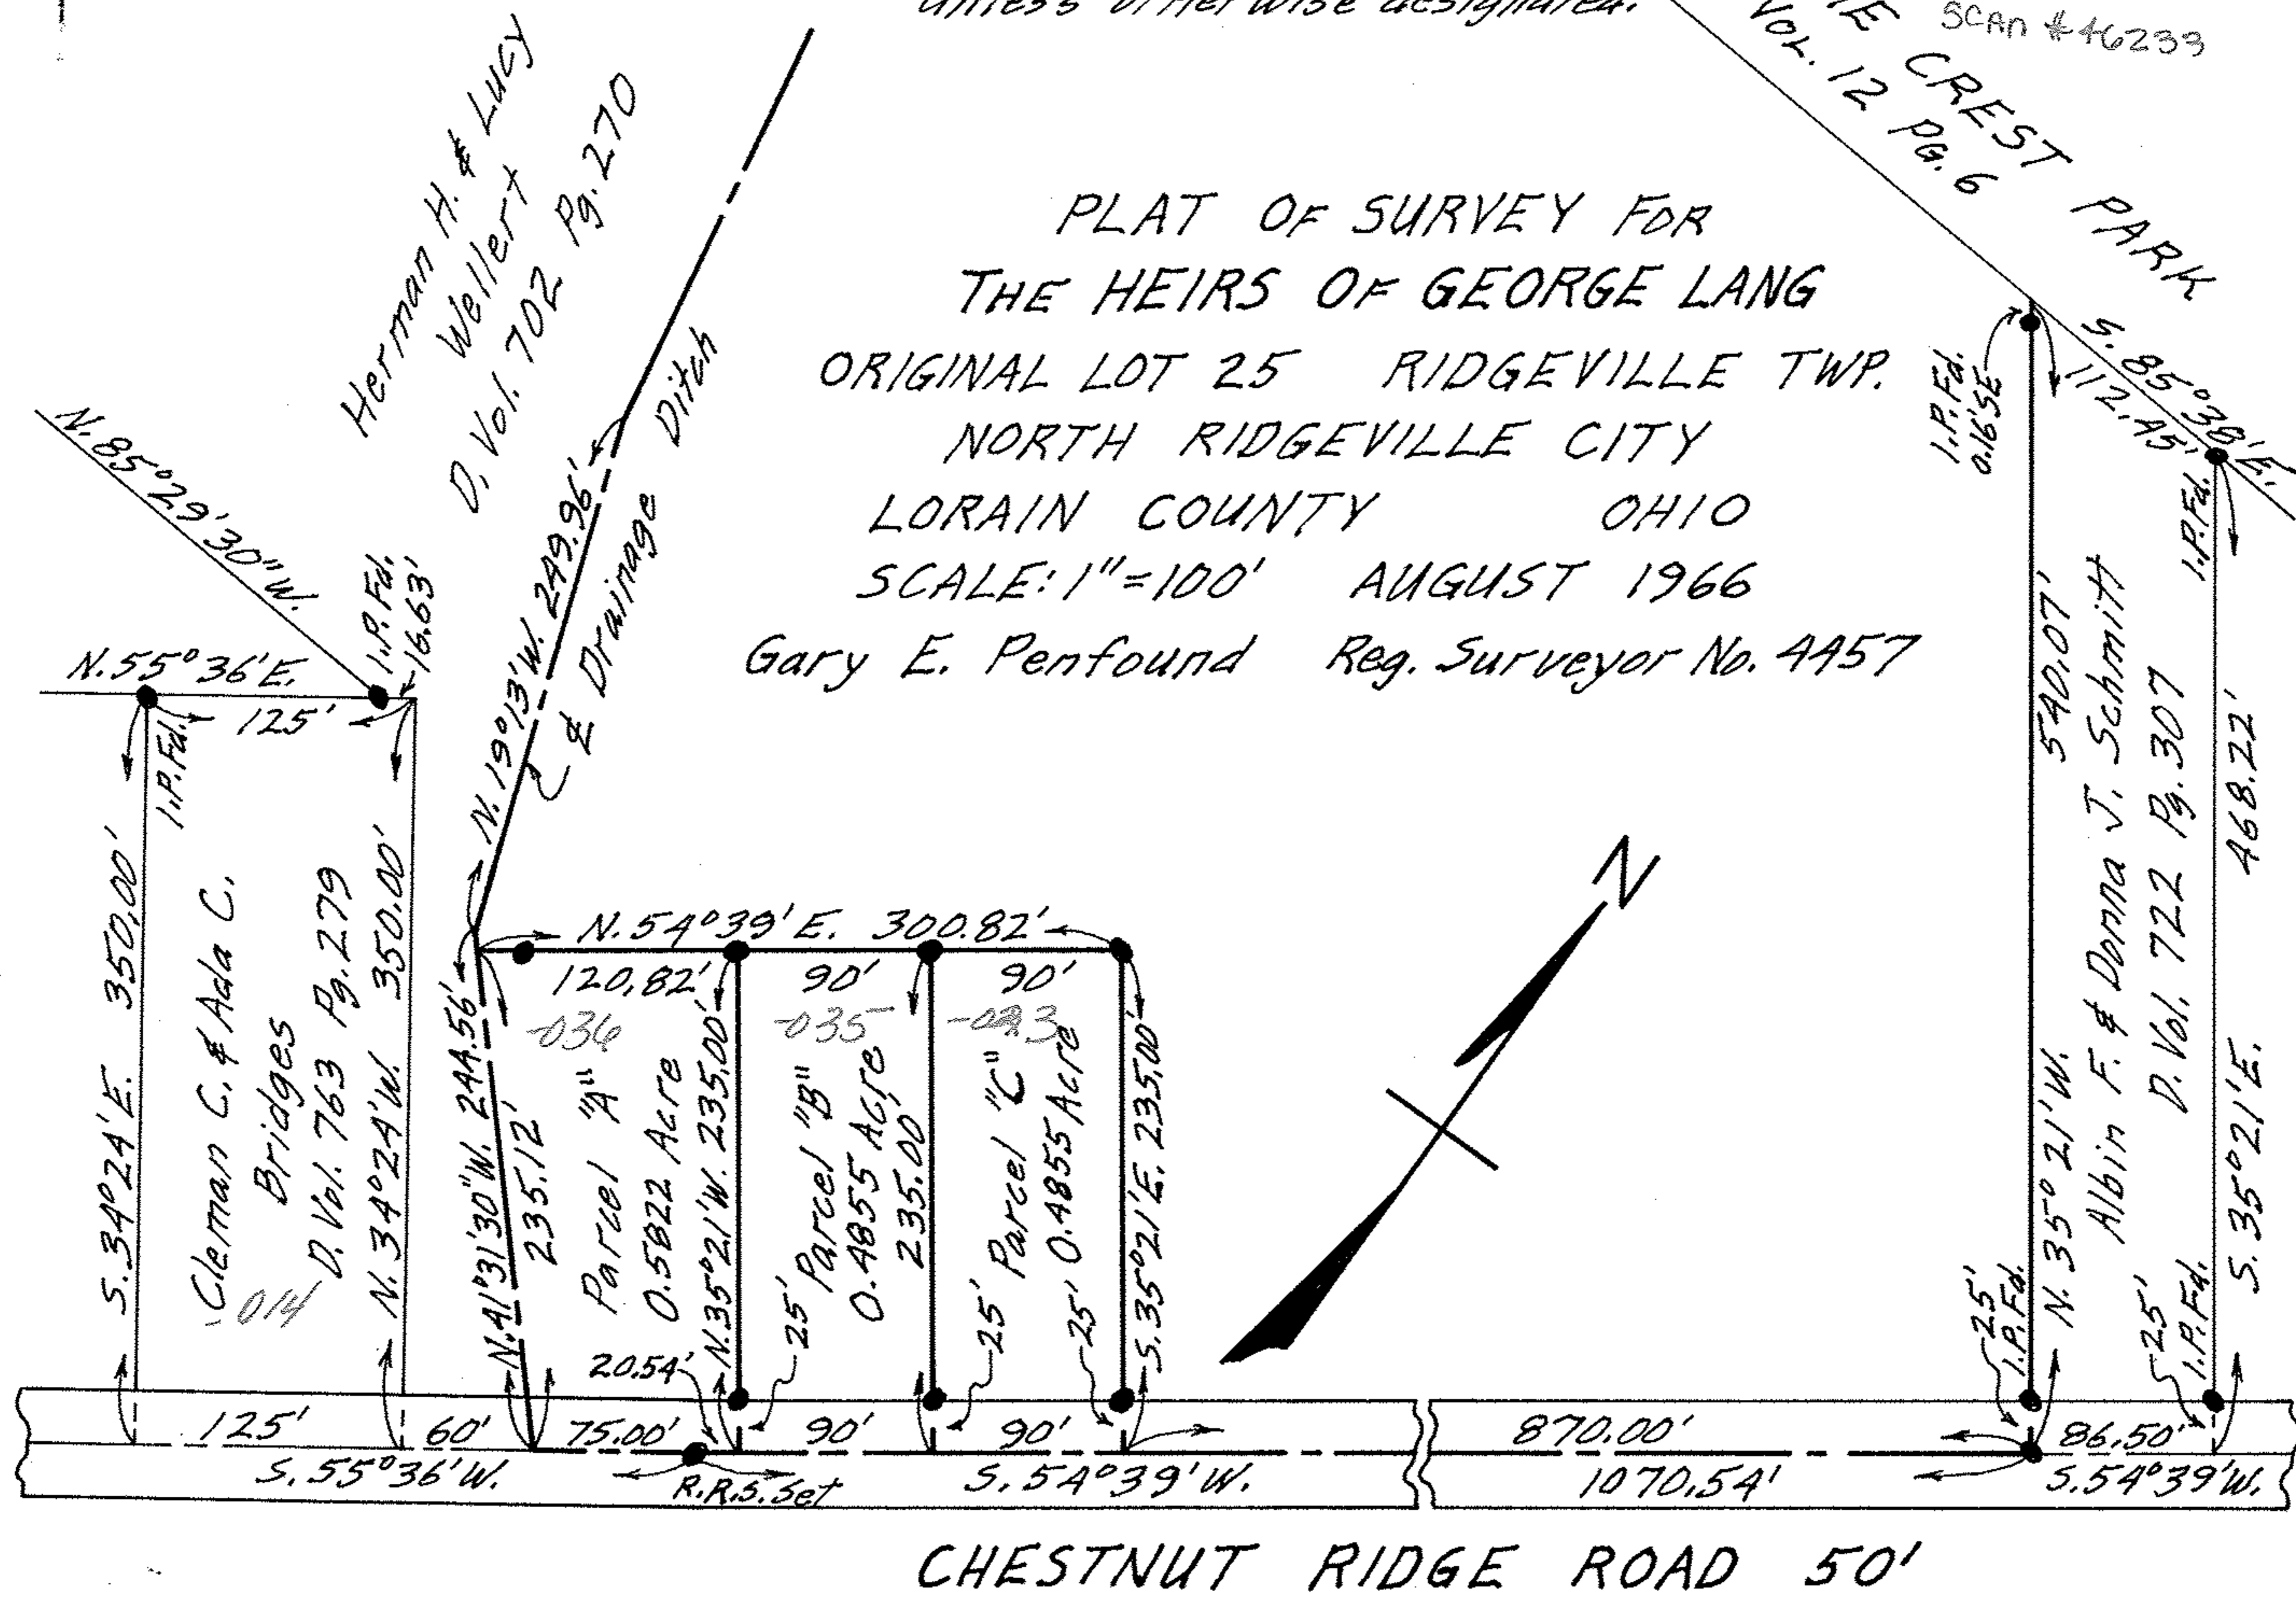 unless otherwise designated.
SCAN #46233
CREST PARK
VOL. 12 PG. 6
Herman H. & Lucy
Wellert
D. Vol. 702 Pg. 270
PLAT OF SURVEY FOR
THE HEIRS OF GEORGE LANG
ORIGINAL LOT 25 RIDGEVILLE TWP.
NORTH RIDGEVILLE CITY
LORAIN COUNTY OHIO
SCALE: 1"=100' AUGUST 1966
Gary E. Penfound Reg. Surveyor No. 4457
N. 85°29'30" W.
I.P. Fd.
16.63'
N. 55°36' E.
125'
I.P. Fd.
S. 34°24' E. 350.00'
Cleman C. & Ada C.
Bridges
D. Vol. 763 Pg. 279
-014
N. 34°24' W. 350.00'
N. 19°13' W. 249.96'
℄ Drainage Ditch
N. 54°39' E. 300.82'
120.82' 90' 90'
-036 -035
N. 41°31'30" W. 244.56'
235.12'
Parcel "A"
0.5822 Acre
N. 35°21' W. 235.00'
25'
Parcel "B"
0.4855 Acre
235.00'
25'
Parcel "C"
0.4855 Acre
25'
S. 35°21' E. 235.00'
20.54'
N
I.P. Fd.
0.16' SE
S. 85°38' E.
112.45'
I.P. Fd.
540.07'
N. 35°21' W.
25'
I.P. Fd.
Albin F. & Donna J. Schmitt
D. Vol. 722 Pg. 307
25'
I.P. Fd.
468.22'
S. 35°21' E.
125' 60' 75.00' 90' 90' 870.00' 86.50'
S. 55°36' W. R.R.S. Set S. 54°39' W. 1070.54' S. 54°39' W.
CHESTNUT RIDGE ROAD 50'